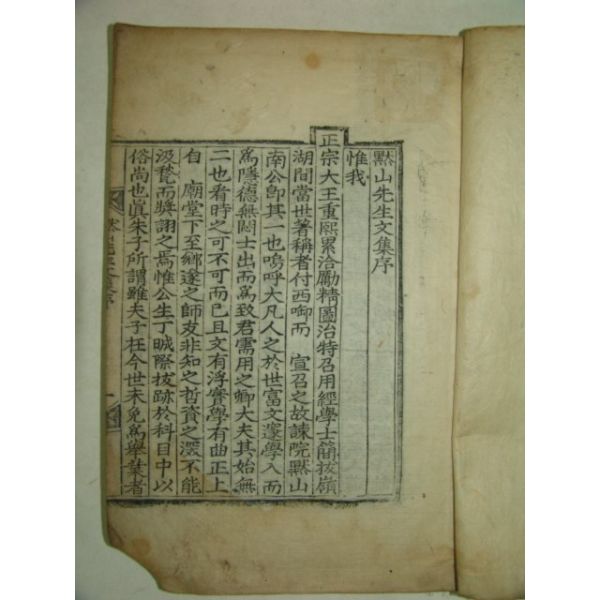 默山先生文集序
惟我
正宗大王重熙累洽勵精圖治特召用經學士簡拔嶺
湖間當世著稱者付西啣而 宣召之故諫院默山
南公卽其一也嗚呼大凡人之於世富文邃學入而
爲隱德無悶士出而爲致君需用之卿大夫其始無
二也看時之可不可而已且文有浮實學有曲正上
自 廟堂下至鄉邃之師友非知之哲資之深不能
汲我而獎詡之焉惟公生丁晠際拔跡於科目中以
俗尚也眞朱子所謂雖夫子在今世未免爲擧業者